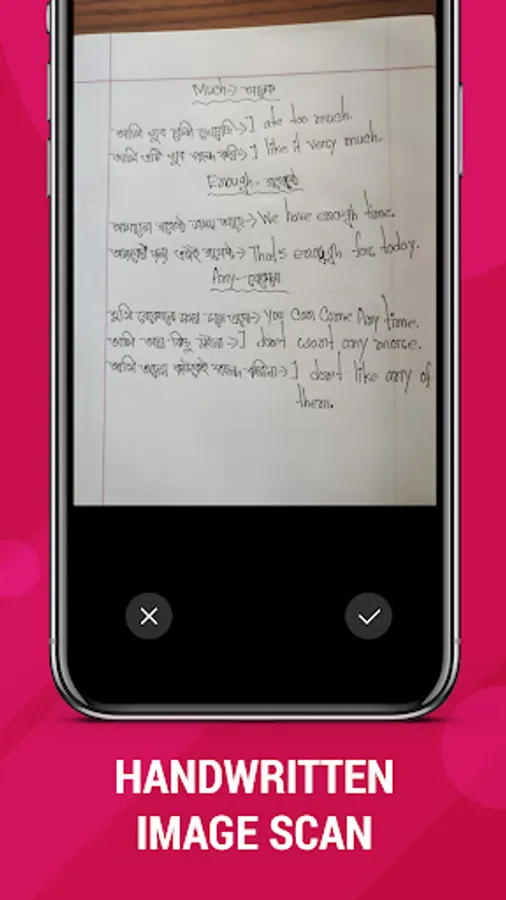 Much → অনেক
আমি খুব বেশি খেয়েছি → I ate too much.
আমি এটি খুব পছন্দ করি → I like it very much.
Enough - যথেষ্ট
আমাদের যথেষ্ট সময় আছে → We have enough time.
আজকের জন্য এটাই যথেষ্ট → That's enough for today.
Any - যেকোনো
তুমি যেকোনো সময় চলে এসো → You Can Come Any time.
আমি আর কিছু চাইনা → I don't want any more.
আমি তাদের কাউকেই পছন্দ করিনা → I don't like any of
them.
HANDWRITTEN
IMAGE SCAN